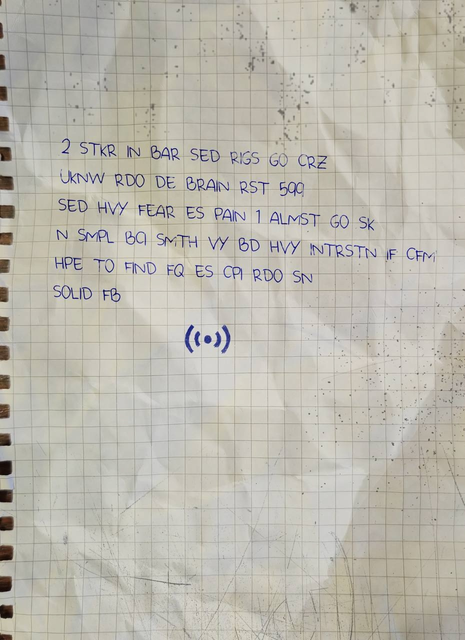 2 STKR IN BAR SED RIGS GO CRZ
UKNW RDO DE BRAIN RST 599
SED HVY FEAR ES PAIN 1 ALMST GO SK
N SMPL BCI SMTH VY BD HVY INTRSTN IF CFM
HPE TO FIND FQ ES CPI RDO SN
SOLID FB